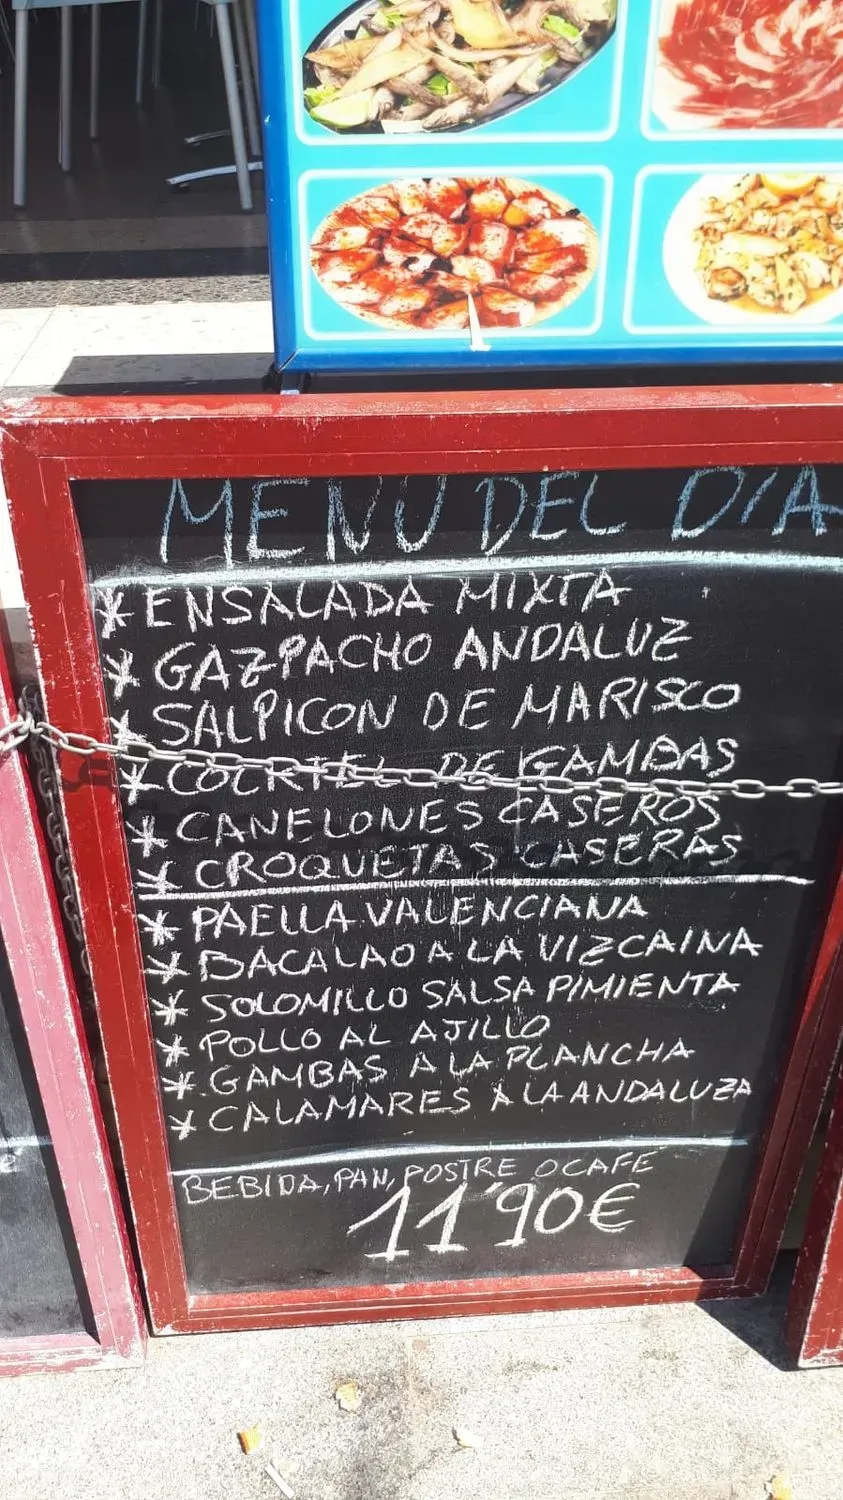 MENU DEL DIA
* ENSALADA MIXTA
* GAZPACHO ANDALUZ
* SALPICON DE MARISCO
* COCKTEL DE GAMBAS
* CANELONES CASEROS
* CROQUETAS CASERAS
* PAELLA VALENCIANA
* BACALAO A LA VIZCAINA
* SOLOMILLO SALSA PIMIENTA
* POLLO AL AJILLO
* GAMBAS A LA PLANCHA
* CALAMARES A LA ANDALUZA
BEBIDA, PAN, POSTRE O CAFE
11'90€